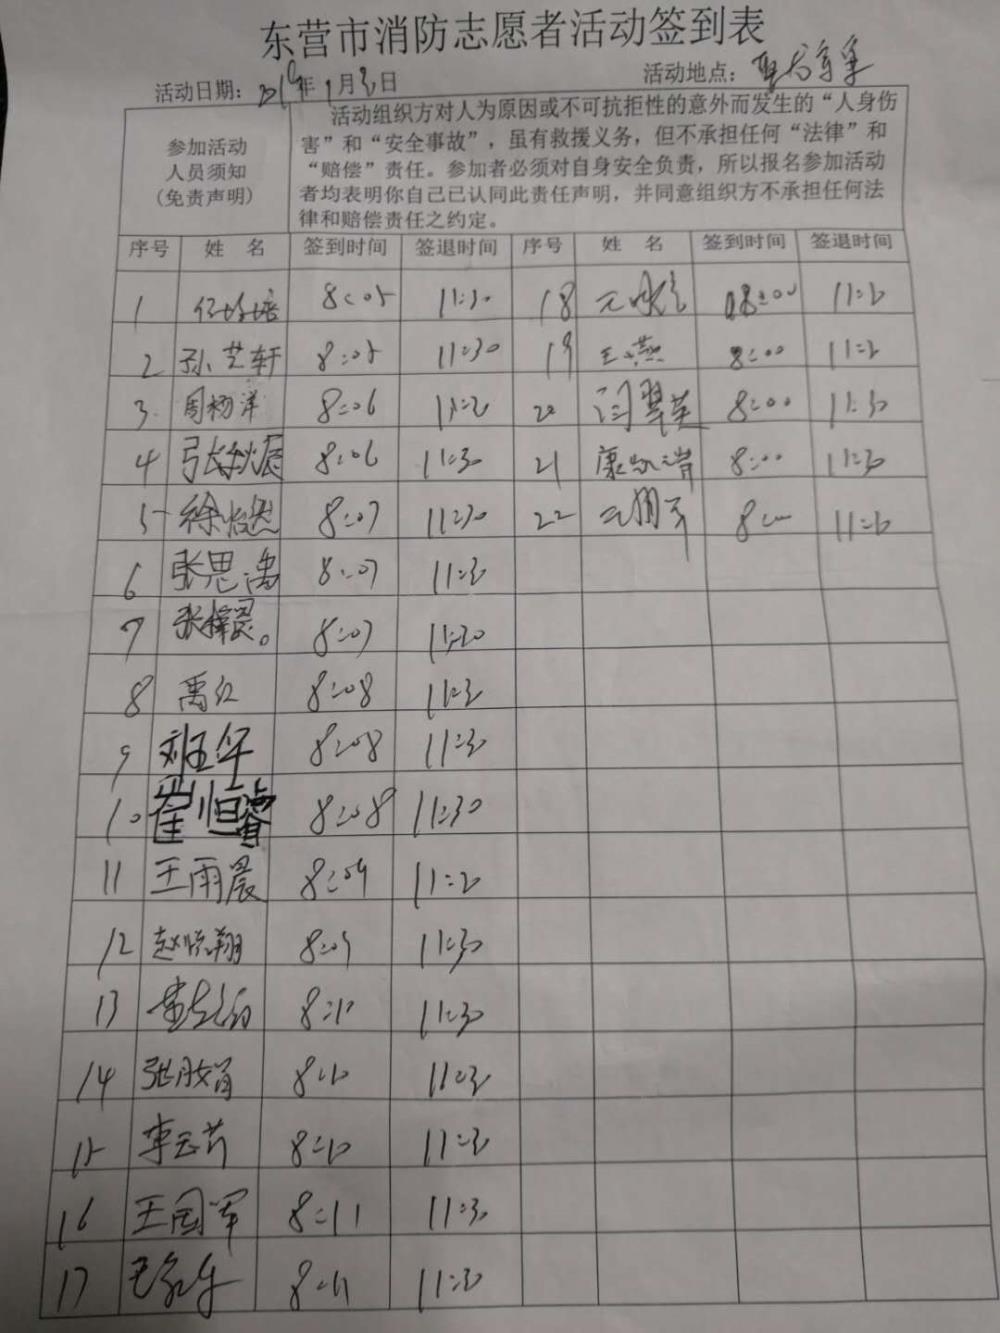 东营市消防志愿者活动签到表
活动日期: 年1月3日 活动地点:
参加活动
人员须知
(免责声明)
活动组织方对人为原因或不可抗拒性的意外而发生的“人身伤
害”和“安全事故”，虽有救援义务，但不承担任何“法律”和
“赔偿”责任。参加者必须对自身安全负责，所以报名参加活动
者均表明你自己已认同此责任声明，并同意组织方不承担任何法
律和赔偿责任之约定。
序号 姓 名 签到时间 签退时间 序号 姓 名 签到时间 签退时间
1 8:05 11:30 18 08:00 11:30
2 孙艺轩 8:05 11:30 19 王燕 8:00 11:30
3. 周杨洋 8:06 11:30 20 闫翠英 8:00 11:30
4 8:06 11:30 21 康凯清 8:00 11:30
5 徐怡然 8:07 11:30 22 8:00 11:30
6 张思禹 8:07 11:30
7 8:07 11:30
8 禹红 8:08 11:30
9 刘玉华 8:08 11:30
10 崔恒睿 8:08 11:30
11 王雨晨 8:09 11:30
12 赵悦翔 8:09 11:30
13 8:10 11:30
14 8:10 11:30
15 李玉芹 8:10 11:30
16 王国军 8:11 11:30
17 8:11 11:30